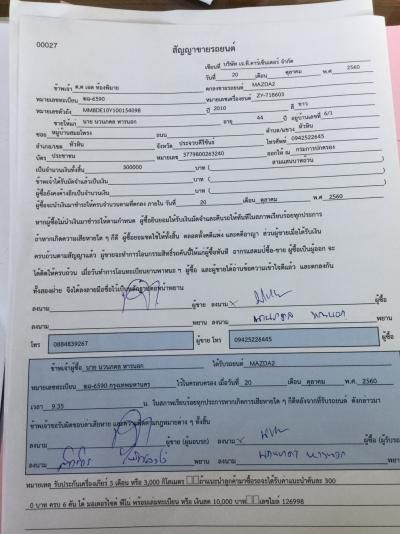 00027
สัญญาขายรถยนต์
เขียนที่ บริษัท เจ.ที.คาร์เซ็นเตอร์ จำกัด
วันที่ 20 เดือน ตุลาคม พ.ศ. 2560
ข้าพเจ้า ด.ต เจต ห้องพิมาย ตกลงขายรถยนต์ MAZDA2
หมายเลขทะเบียน ฆฉ-6590 หมายเลขเครื่องยนต์ ZY-718603
หมายเลขตัวถัง MM8DE10Y100154098 ปี 2010 สี ขาว
ขายให้แก่ นาย นวนกดล หานนอก อายุ 44 ปี อยู่บ้านเลขที่ 6/1
ซอย หมู่บ้านสมอโพรง ถนน ตำบล/แขวง หัวหิน
อำเภอ/เขต หัวหิน จังหวัด ประจวบคีรีขันธ์ โทรศัพท์ 0942522645
บัตร ประชาชน หมายเลข 3779800263240 ออกให้ ณ กรมการปกครอง
เป็นจำนวนเงินทั้งสิ้น 300000 บาท ( สามแสนบาทถ้วน )
ข้าพเจ้าได้รับมัดจำแล้วเป็นเงิน บาท ( )
ผู้ซื้อยังคงค้างอีกเป็นจำนวนเงิน บาท ( )
ผู้ซื้อจะนำเงินมาชำระให้ครบจำนวนตามที่ตกลง ภายใน วันที่ 20 เดือน ตุลาคม พ.ศ. 2560
หากผู้ซื้อไม่นำเงินมาชำระให้ตามกำหนด ผู้ซื้อยินยอมให้ริบเงินมัดจำและคืนรถให้ทันทีในสภาพเรียบร้อยทุกประการ
ถ้าหากเกิดความเสียหายใด ๆ ก็ดี ผู้ซื้อยอมชดใช้ให้ทั้งสิ้น ตลอดทั้งคดีแพ่ง และคดีอาญา ส่วนผู้ขายเมื่อได้รับเงิน
ครบถ้วนตามสัญญาแล้ว ผู้ขายจะทำการโอนกรรมสิทธิ์รถคันนี้ให้แก่ผู้ซื้อทันที อากรแสตมป์ซื้อ-ขาย ผู้ซื้อเป็นผู้ออก จะ
ทั้งสองฝ่าย จึงได้ลงลายมือชื่อไว้เป็นหลักฐานต่อหน้าพยาน
ลงนาม ผู้ขาย ลงนาม ผู้ซื้อ
ลงนาม พยาน ลงนาม พยาน
โทร 0884839267 ผู้ขาย โทร 09425226445 ผู้ซื้อ
ข้าพเจ้าผู้ซื้อ นาย นวนกดล หานนอก ได้รับรถยนต์ MAZDA2
หมายเลขทะเบียน ฆฉ-6590 กรุงเทพมหานคร ไว้ในครอบครอง เมื่อวันที่ 20 เดือน ตุลาคม พ.ศ. 2560
เวลา 9.35 น. ในสภาพเรียบร้อยทุกประการหากเกิดการเสียหายใด ๆ ก็ดีหลังจากที่รับรถยนต์ ดังกล่าวมา
ข้าพเจ้าขอรับผิดชอบค่าเสียหาย และความผิดตามกฎหมายต่าง ๆ ทั้งสิ้น
ลงนาม ผู้ขาย (ผู้มอบรถ) ลงนาม ผู้ซื้อ (ผู้รับรถ)
ลงนาม พยาน ลงนาม พยาน
หมายเหตุ รับประกันเครื่องเกียร์ 3 เดือน หรือ 3,000 กิโลเมตร ถ้าแนะนำลูกค้ามาซื้อรถจะได้รับค่าแนะนำคันละ 300
0 บาท ครบ 6 คัน ได้ มอเตอร์ไซค์ ฟีโน่ พร้อมเล่มทะเบียน หรือ เงินสด 10,000 บาท เลขไมล์ 126998